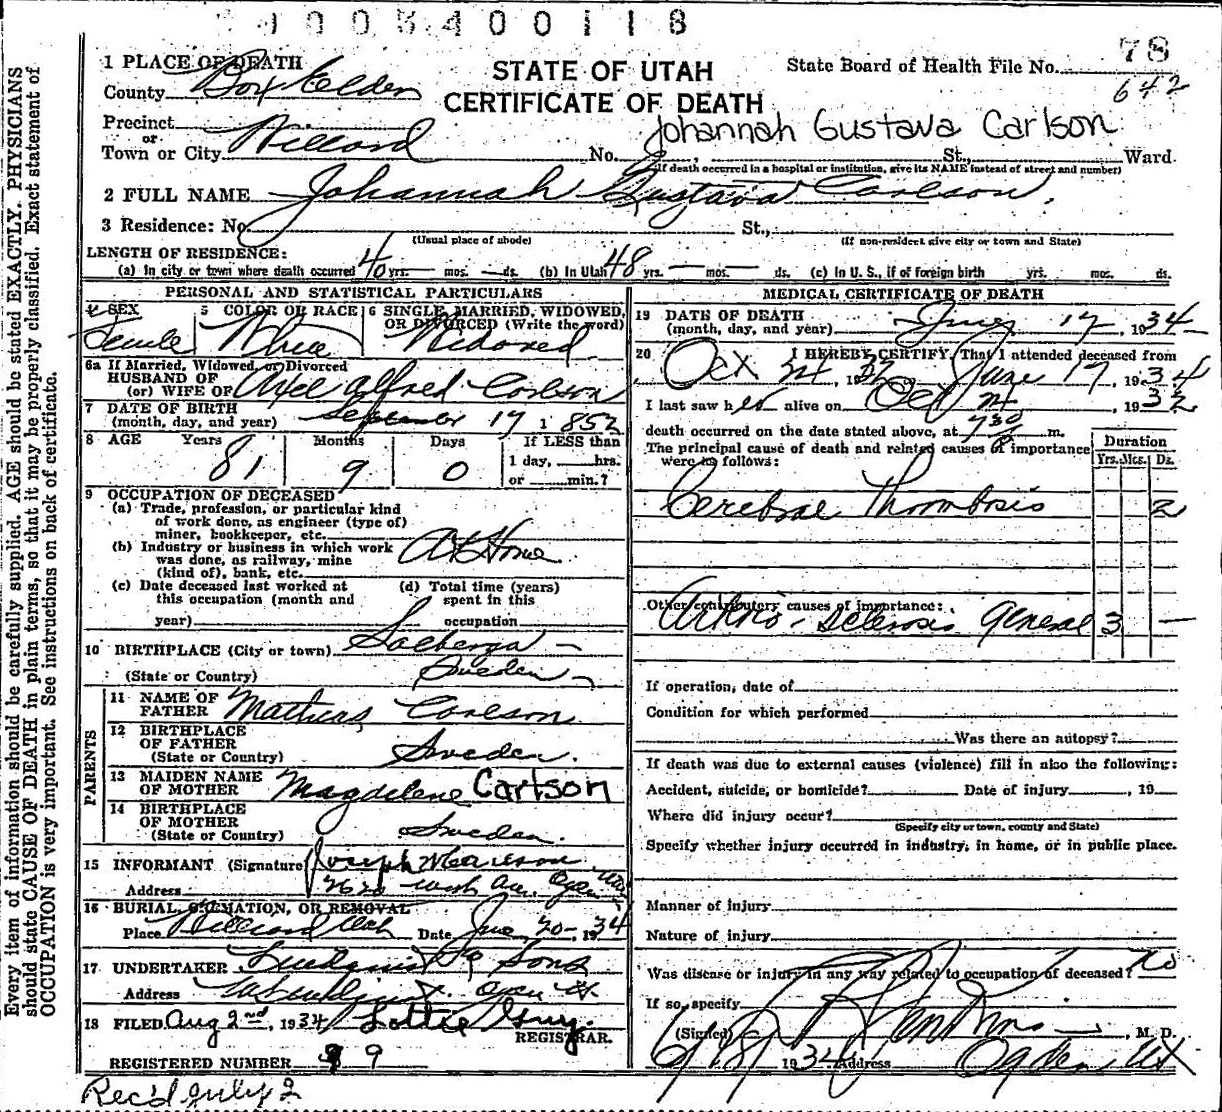 1003400118
78
642
STATE OF UTAH
CERTIFICATE OF DEATH
State Board of Health File No.
1 PLACE OF DEATH
County Box Elder
Precinct
or
Town or City Willard No. St., Ward
Johannah Gustava Carlson
(If death occurred in a hospital or institution, give its NAME instead of street and number)
2 FULL NAME Johannah Gustava Carlson.
3 Residence: No. St.,
(Usual place of abode) (If non-resident give city or town and State)
LENGTH OF RESIDENCE:
(a) In city or town where death occurred 40 yrs. — mos. — ds. (b) In Utah 48 yrs. — mos. — ds. (c) In U. S., if of foreign birth yrs. mos. ds.
PERSONAL AND STATISTICAL PARTICULARS
4 SEX 5 COLOR OR RACE 6 SINGLE, MARRIED, WIDOWED, OR DIVORCED (Write the word)
Female White Widowed
6a If Married, Widowed, or Divorced
HUSBAND OF
(or) WIFE OF Axel Alfred Carlson
7 DATE OF BIRTH
(month, day, and year) September 17 1852
8 AGE Years Months Days If LESS than
81 9 0 1 day, hrs.
or min.?
9 OCCUPATION OF DECEASED
(a) Trade, profession, or particular kind
of work done, as engineer (type of)
miner, bookkeeper, etc.
At Home
(b) Industry or business in which work
was done, as railway, mine
(kind of), bank, etc.
(c) Date deceased last worked at
this occupation (month and
year)
(d) Total time (years)
spent in this
occupation
10 BIRTHPLACE (City or town) Solberga —
(State or Country) Sweden
PARENTS
11 NAME OF
FATHER Mathias Carlson
12 BIRTHPLACE
OF FATHER
(State or Country) Sweden.
13 MAIDEN NAME
OF MOTHER Magdelene Carlson
14 BIRTHPLACE
OF MOTHER
(State or Country) Sweden.
15 INFORMANT (Signature Joseph
Address Wash Ave. Ogden Utah
16 BURIAL, CREMATION, OR REMOVAL
Place Willard Utah Date June 20-, 1934
17 UNDERTAKER Lindquist & Sons
Address Ogden Ut.
18 FILED Aug 2nd, 1934 Lottie
REGISTRAR.
REGISTERED NUMBER 9
Rec'd July 2
MEDICAL CERTIFICATE OF DEATH
19 DATE OF DEATH
(month, day, and year) June 17, 1934
20 I HEREBY CERTIFY, That I attended deceased from
Oct 24, 1932 June 17, 1934
I last saw her alive on Oct 24, 1932
death occurred on the date stated above, at 730 P m.
The principal cause of death and related causes of importance
were as follows:
Duration
Yrs. Mos. Ds.
Cerebral Thrombosis 2
Other contributory causes of importance:
Arterio-sclerosis general 3 —
If operation, date of
Condition for which performed
Was there an autopsy?
If death was due to external causes (violence) fill in also the following:
Accident, suicide, or homicide? Date of injury , 19
Where did injury occur?
(Specify city or town, county and State)
Specify whether injury occurred in industry, in home, or in public place.
Manner of injury
Nature of injury
Was disease or injury in any way related to occupation of deceased? No
If so, specify
(Signed) , M. D.
6/18/1934 Address Ogden Ut
Every item of information should be carefully supplied. AGE should be stated EXACTLY. PHYSICIANS
should state CAUSE OF DEATH in plain terms, so that it may be properly classified. Exact statement of
OCCUPATION is very important. See instructions on back of certificate.